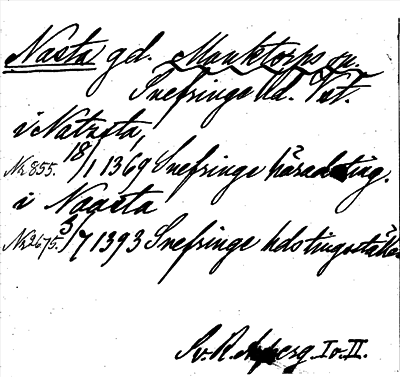 Nasta gd. Munktorps sn.
Snefringe hd. Vstm.
i Natzsta,
No 855. 18/1 1369 Snefringe häradsting.
i Naasta
No 2675. 3/7 1393 Snefringe hdstingsställe
Sv. R. Pperg. I o. II.